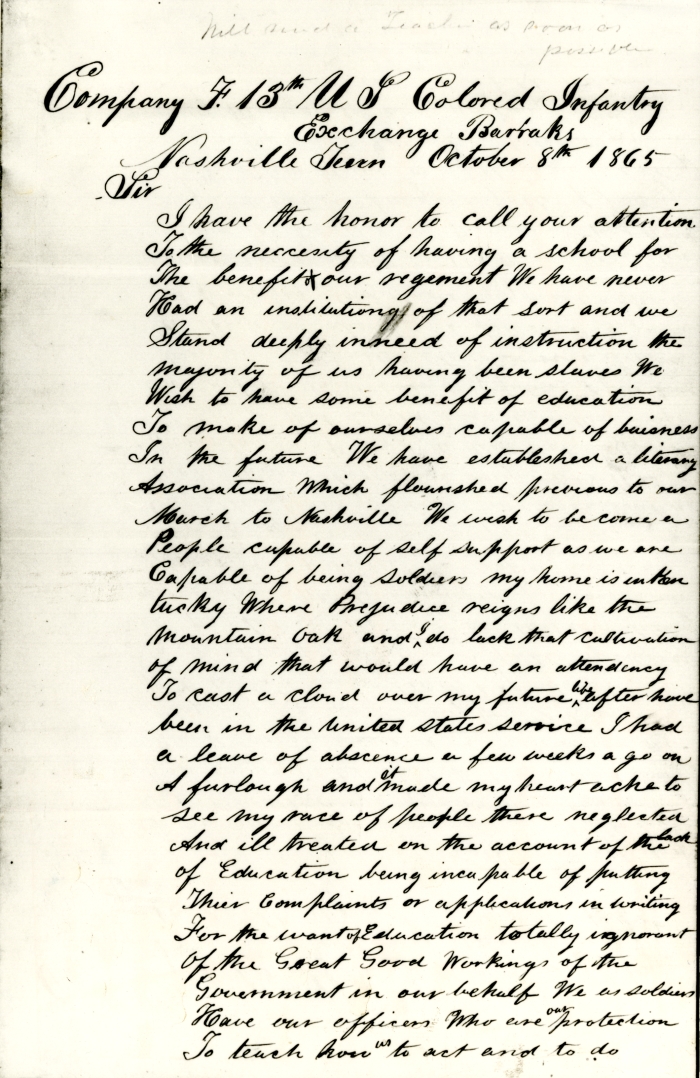 Will send a Teacher as soon as
possible
Company F. 13th U S Colored Infantry
Exchange Barraks
Nashville Tenn October 8th 1865
Sir
I have the honor to call your attention
To the neccesity of having a school for
The benefit of our regement We have never
Had an institutiong of that sort and we
Stand deeply inneed of instruction the
majority of us having been slaves We
Wish to have some benefit of education
To make of ourselves capable of buisness
In the future We have established a literary
Association which flourished previous to our
March to Nashville We wish to become a
People capable of self support as we are
Capable of being soldiers my home is in Ken
tucky Where Prejudice reigns like the
Mountain Oak and I do lack that cultivation
of mind that would have an attendency
To cast a cloud over my future life after have
been in the United States service I had
a leave of abscence a few weeks a go on
A furlough and it made my heart ache to
see my race of people there neglected
And ill treated on the account of the lack
of Education being incapable of putting
Thier Complaints or applications in writing
For the want of Education totally ignorant
Of the Great Good Workings of the
Government in our behalf We as soldiers
Have our officers Who are our protection
To teach how us to act and to do